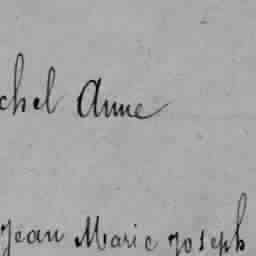 chel Anne
Jean Marie Joseph